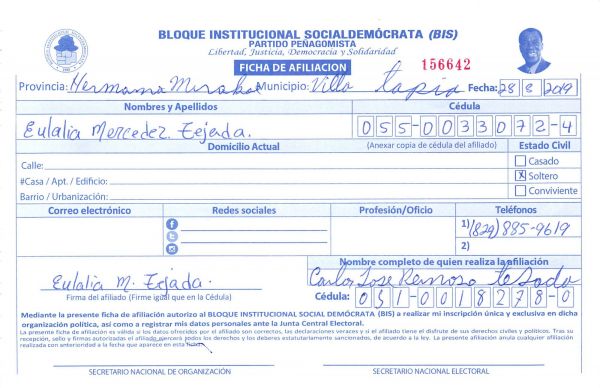 BLOQUE INSTITUCIONAL SOCIALDEMÓCRATA (BIS)
PARTIDO PEÑAGOMISTA
Libertad, Justicia, Democracia y Solidaridad
FICHA DE AFILIACION 156642
Provincia: Hermanas Mirabal Municipio: Villa tapia Fecha: 28 8 2019
Nombres y Apellidos Cédula
Eulalia Mercedez Tejada. 055-0033072-4
Domicilio Actual (Anexar copia de cédula del afiliado) Estado Civil
Calle: Casado
#Casa / Apt. / Edificio: X Soltero
Barrio / Urbanización: Conviviente
Correo electrónico Redes sociales Profesión/Oficio Teléfonos
1) (829) 885-9619
2)
Nombre completo de quien realiza la afiliación
Eulalia M. Tejada. Carlos Jose Reinoso
Firma del afiliado (Firme igual que en la Cédula) Cédula: 051-0018278-0
Mediante la presente ficha de afiliación autorizo al BLOQUE INSTITUCIONAL SOCIAL DEMÓCRATA (BIS) a realizar mi inscripción única y exclusiva en dicha
organización política, así como a registrar mis datos personales ante la Junta Central Electoral.
La presente ficha de afiliación es válida si los datos ofrecidos por el afiliado son correctos, las declaraciones veraces y si el afiliado tiene el disfrute de sus derechos civiles y políticos. Tras su
recepción, sello y firmas autorizadas el afiliado ejercerá todos los derechos y los deberes estatutariamente sancionados, de acuerdo a la ley. La presente afiliación anula cualquier afiliación
realizada con anterioridad a la fecha que aparece en esta
SECRETARIO NACIONAL DE ORGANIZACIÓN SECRETARIO NACIONAL ELECTORAL